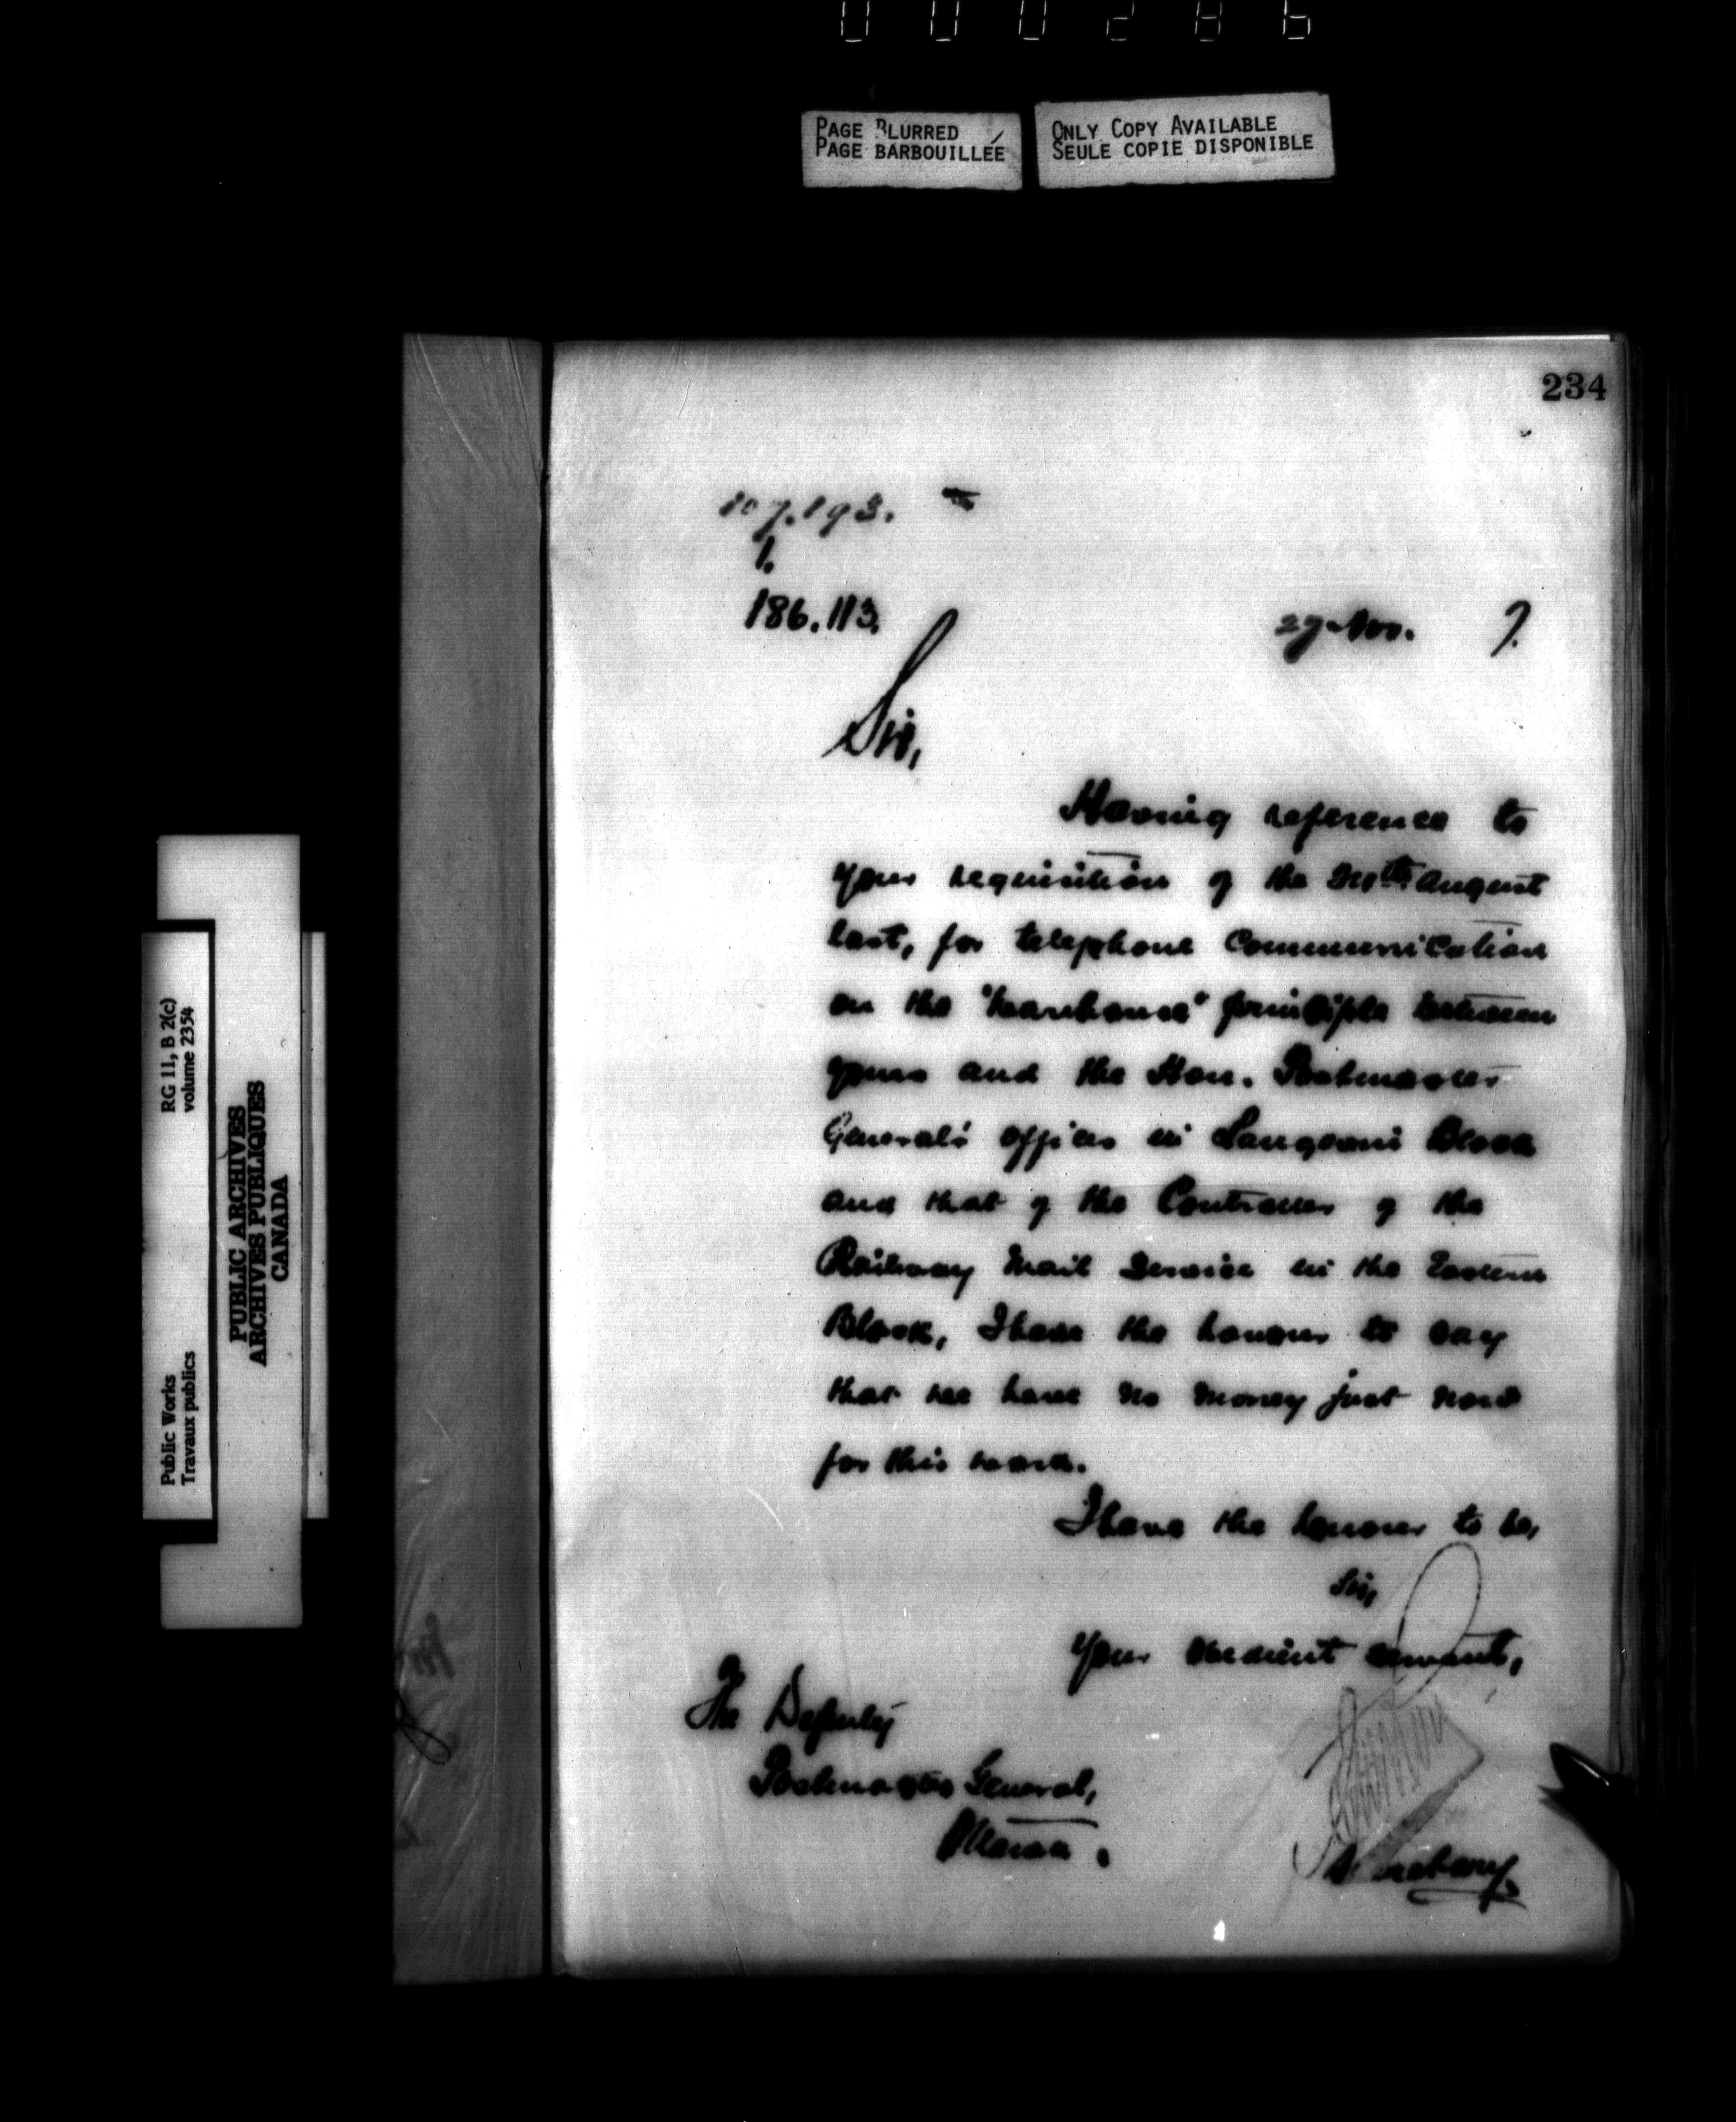 000286
PAGE BLURRED
PAGE BARBOUILLÉE
ONLY COPY AVAILABLE
SEULE COPIE DISPONIBLE
234
107.193.
1.
186.113.
27 Nov. 7.
Sir,
Having reference to
your requisition of the August
last, for telephone communication
on the "warehouse" principle between
yours and the Hon. Postmaster
General's offices in Langevin Block
and that of the Controller of the
Railway Mail Service in the Eastern
Block, I have the honour to say
that we have no money just now
for this work.
I have the honour to be,
Sir,
Your obedient servant,
The Deputy
Postmaster General,
Ottawa.
Secretary.
Public Works
Travaux publics
RG 11, B 2(c)
volume 2354
PUBLIC ARCHIVES
ARCHIVES PUBLIQUES
CANADA